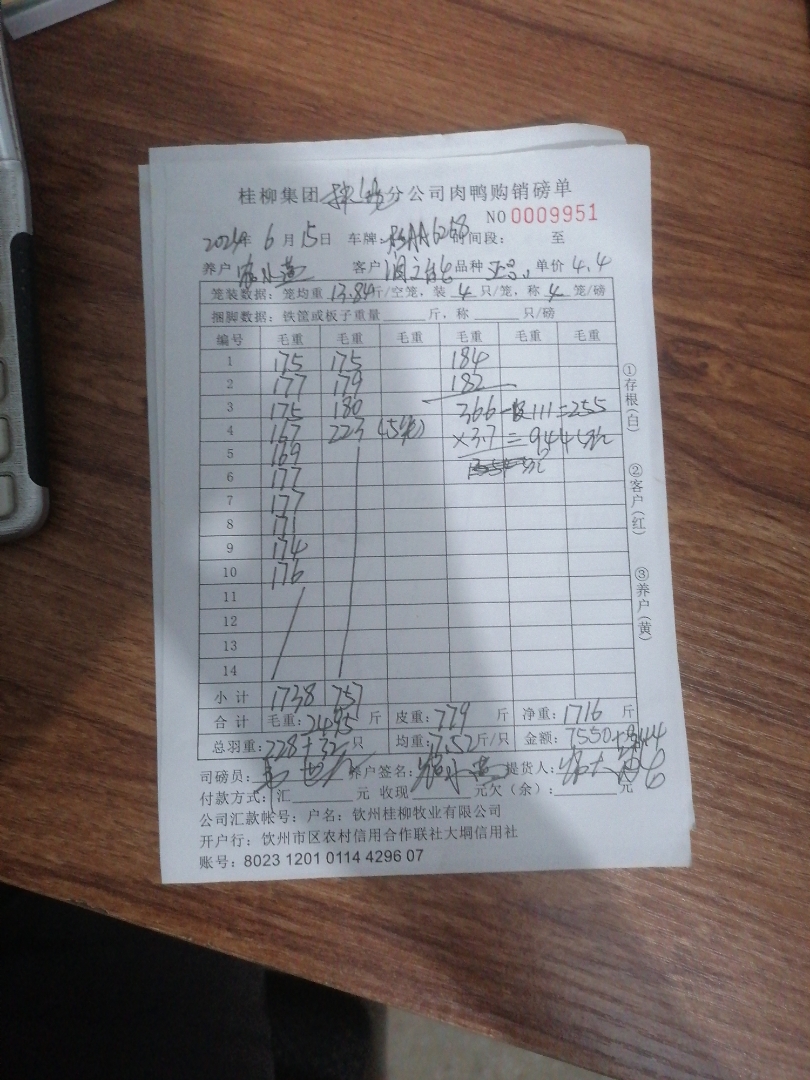 桂柳集团 分公司肉鸭购销磅单
NO 0009951
2024年 6月15日 车牌: AA6258 时间段: 至
养户 客户 品种 正品 单价 4.4
笼装数据:笼均重 13.84斤/空笼,装 4 只/笼,称 4 笼/磅
捆脚数据:铁筐或板子重量 斤,称 只/磅
编号 毛重 毛重 毛重 毛重 毛重 毛重
1 175 175 184
2 177 179 182
3 175 180 366 111=255
4 167 223 (5笼) ×3.7=944
5 169
6 177
7 177
8 171
9 174
10 176
11
12
13
14
小计 1738 757
合计 毛重:2495 斤 皮重:779 斤 净重:1716 斤
总羽重:228+32只 均重:7.52斤/只 金额:7550+944
司磅员: 养户签名: 提货人:
付款方式:汇 元 收现 元欠(余): 元
公司汇款帐号:户名:钦州桂柳牧业有限公司
开户行:钦州市区农村信用合作联社大垌信用社
账号:8023 1201 0114 4296 07
①存根(白)
②客户(红)
③养户(黄)